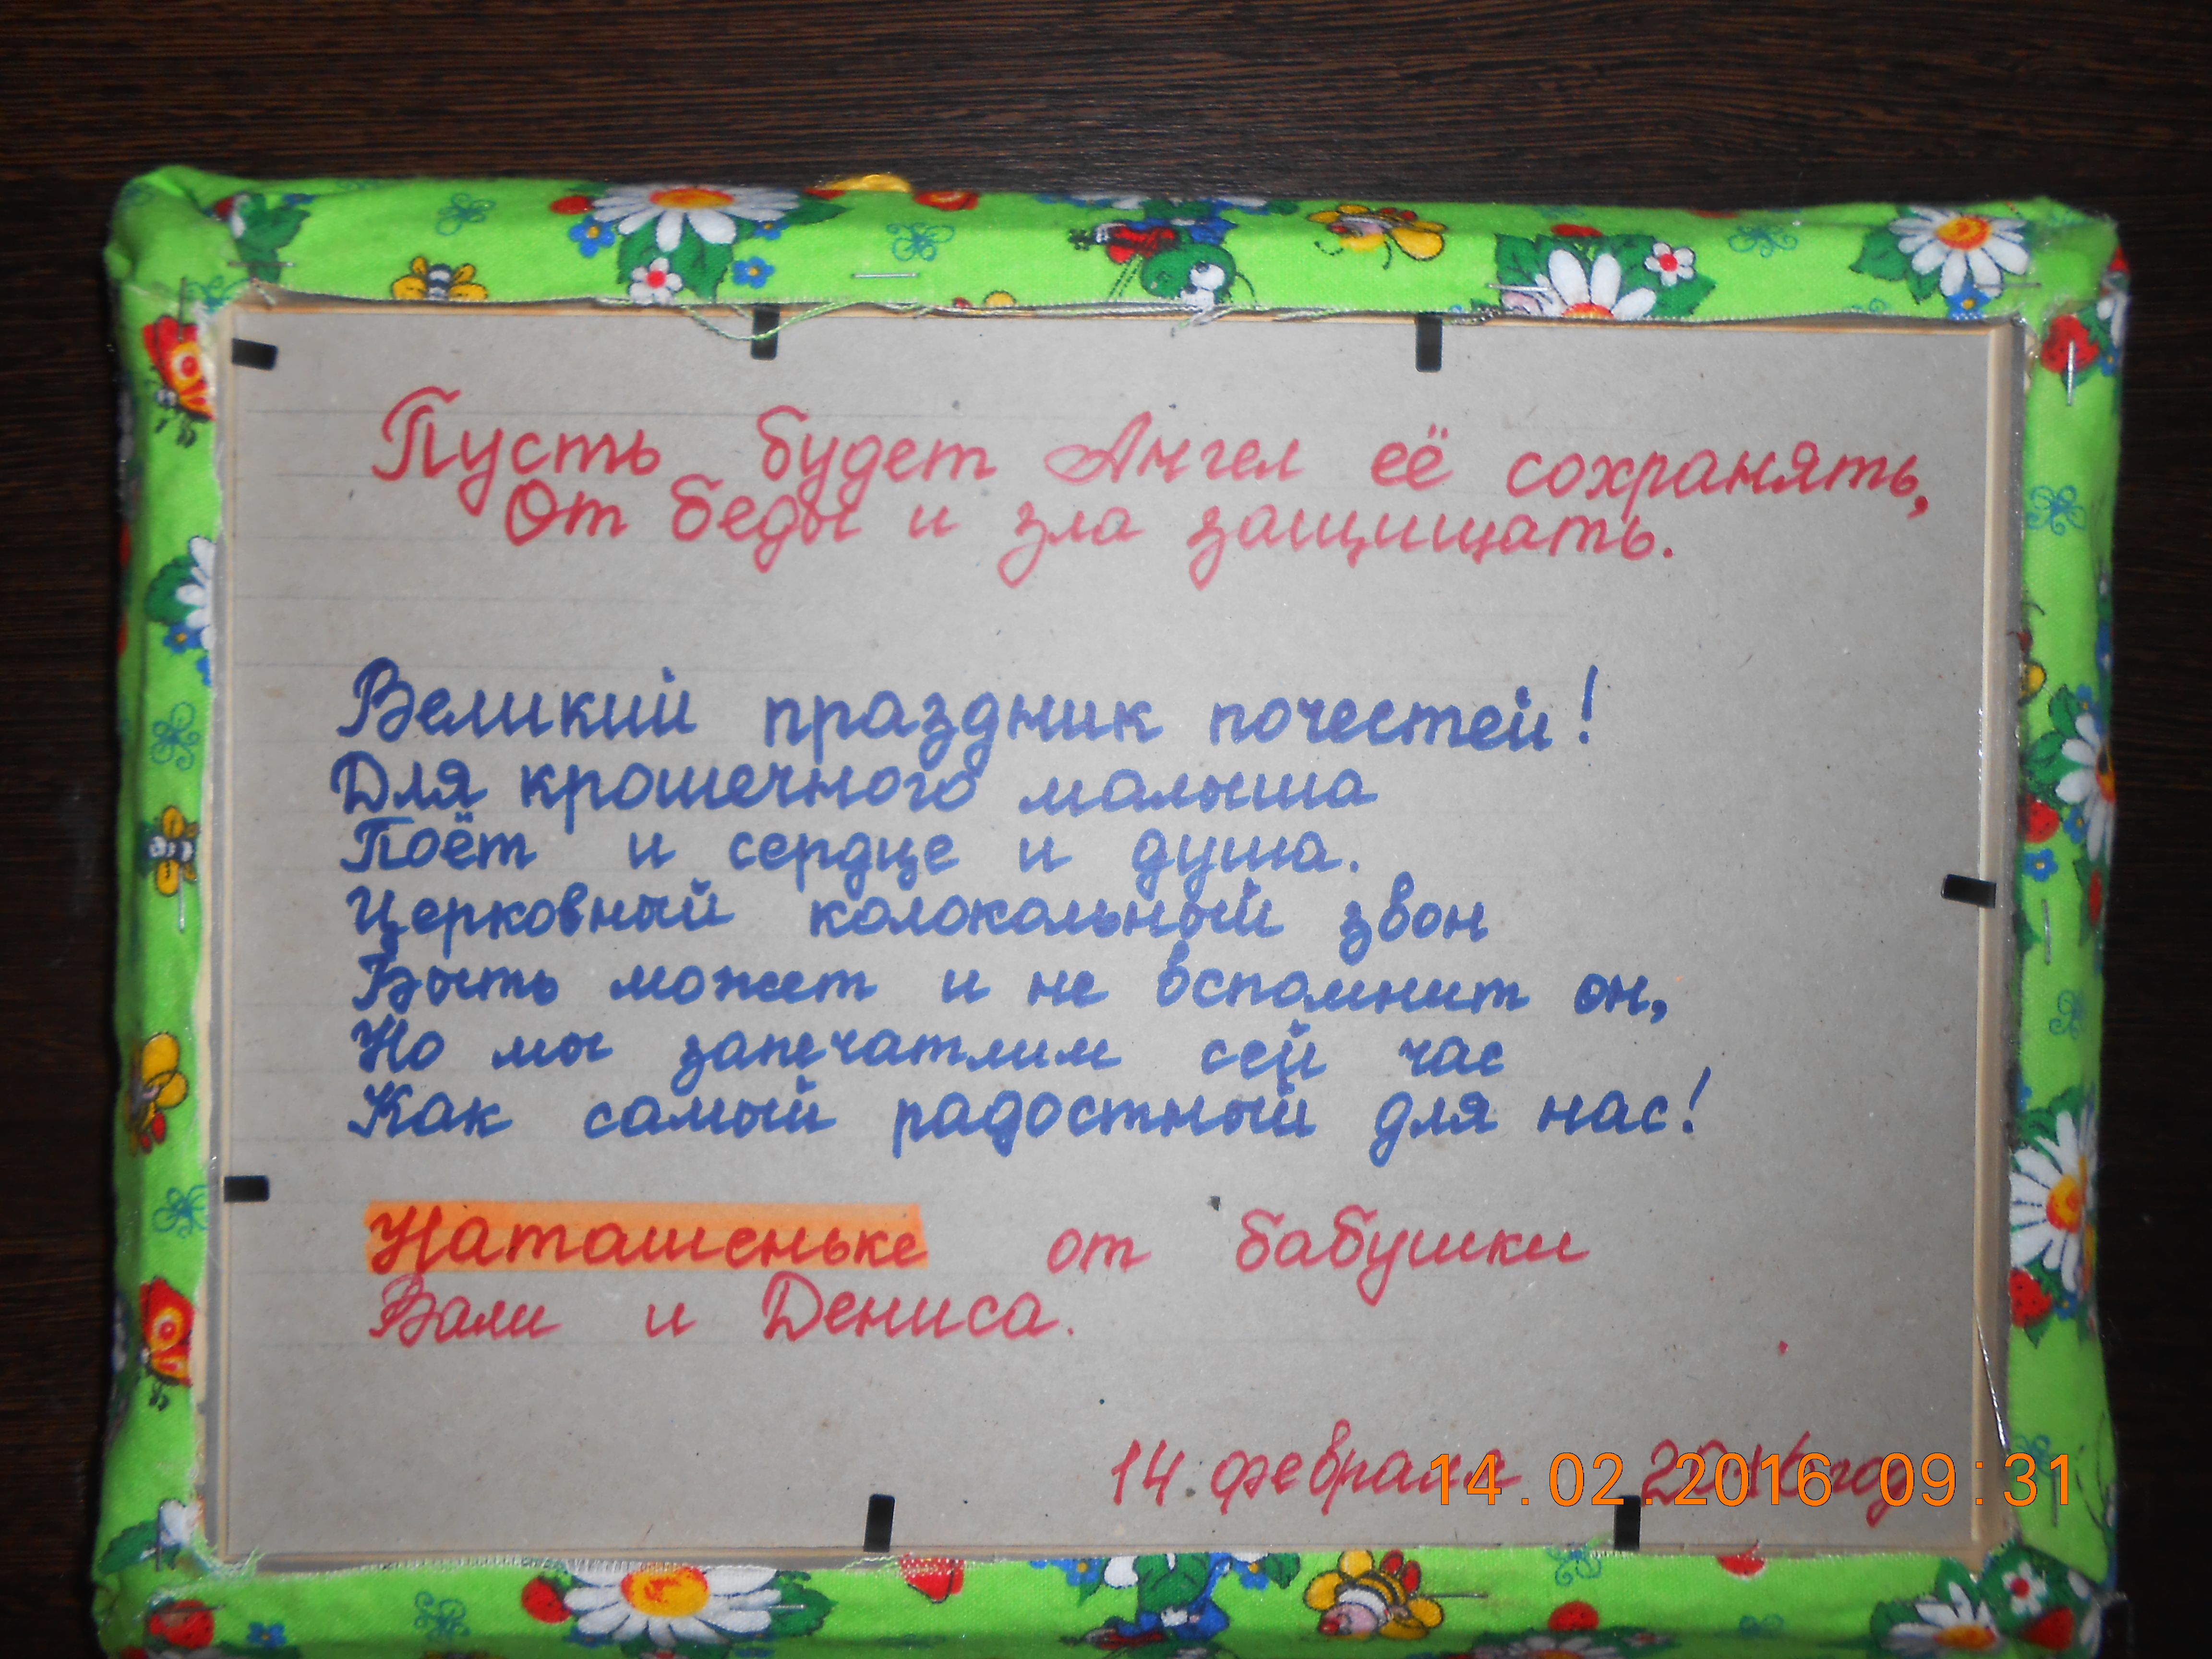 Пусть будет Ангел её сохранять,
От беды и зла защищать.
Великий праздник почестей!
Для крошечного малыша
Поёт и сердце и душа.
Церковный колокольный звон
Быть может и не вспомнит он,
Но мы запечатлим сей час
Как самый радостный для нас!
Наташеньке от бабушки
Вали и Дениса.
14 февраля 2016 год
14.02.2016 09:31